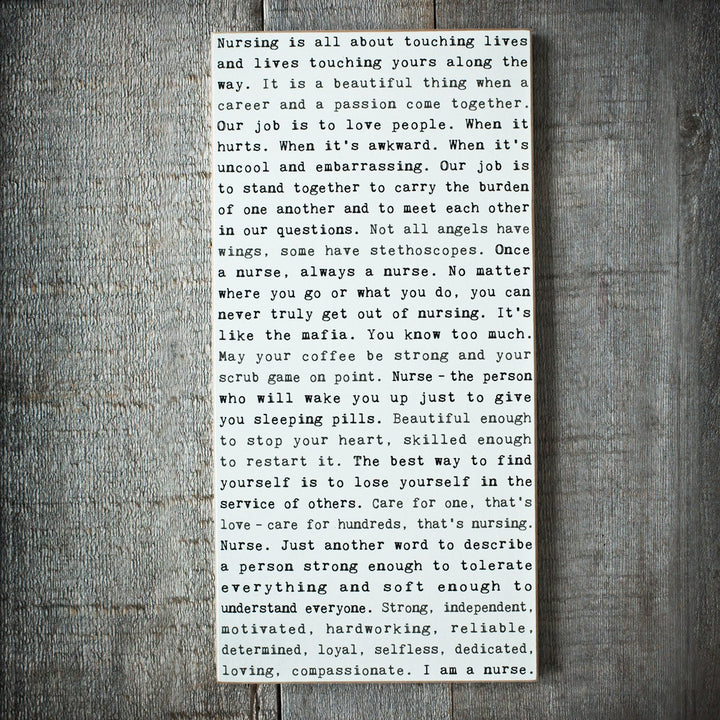 Nursing is all about touching lives
and lives touching yours along the
way. It is a beautiful thing when a
career and a passion come together.
Our job is to love people. When it
hurts. When it's awkward. When it's
uncool and embarrassing. Our job is
to stand together to carry the burden
of one another and to meet each other
in our questions. Not all angels have
wings, some have stethoscopes. Once
a nurse, always a nurse. No matter
where you go or what you do, you can
never truly get out of nursing. It's
like the mafia. You know too much.
May your coffee be strong and your
scrub game on point. Nurse – the person
who will wake you up just to give
you sleeping pills. Beautiful enough
to stop your heart, skilled enough
to restart it. The best way to find
yourself is to lose yourself in the
service of others. Care for one, that's
love – care for hundreds, that's nursing.
Nurse. Just another word to describe
a person strong enough to tolerate
everything and soft enough to
understand everyone. Strong, independent,
motivated, hardworking, reliable,
determined, loyal, selfless, dedicated,
loving, compassionate. I am a nurse.